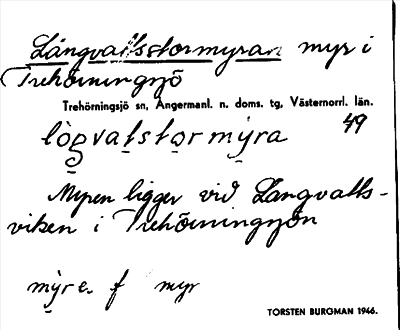 Långvattsstormyran myr i
Trehörningsjö
Trehörningsjö sn, Ångermanl. n. doms. tg, Västernorrl. län.
lòg̰vatstormy̆ra 49
Myren ligger vid Långvatts-
viken i Trehörningsjön
mỳre f myr
TORSTEN BURGMAN 1946.